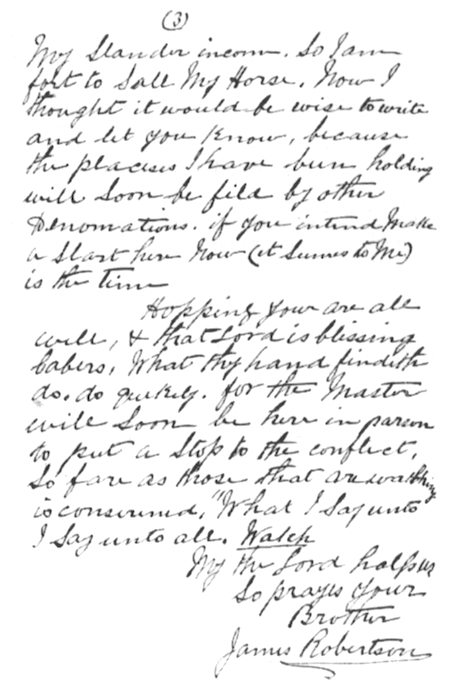 (3)
My Slander income. So I am
fort to Sall My Horse. Now I
thought it would be wise to write
and let you Know, because
the placises I have bun holding
will Soon be fild by other
Denomations. if you intend Make
a Start here Now (it Sumes to Me)
is the time
Hopping your are all
well, & that Lord is blissing
labers, What thy hand findeth
do. do quekely. for the Master
will Soon be here in parson
to put a Stop to the conflect,
So fare as those that are watching
is conserned, "What I Say unto
I Say unto all. Watch
My the Lord halps us
So prayes your
Brother
James Robertson